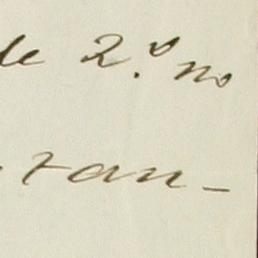 de 2.º no
tan-